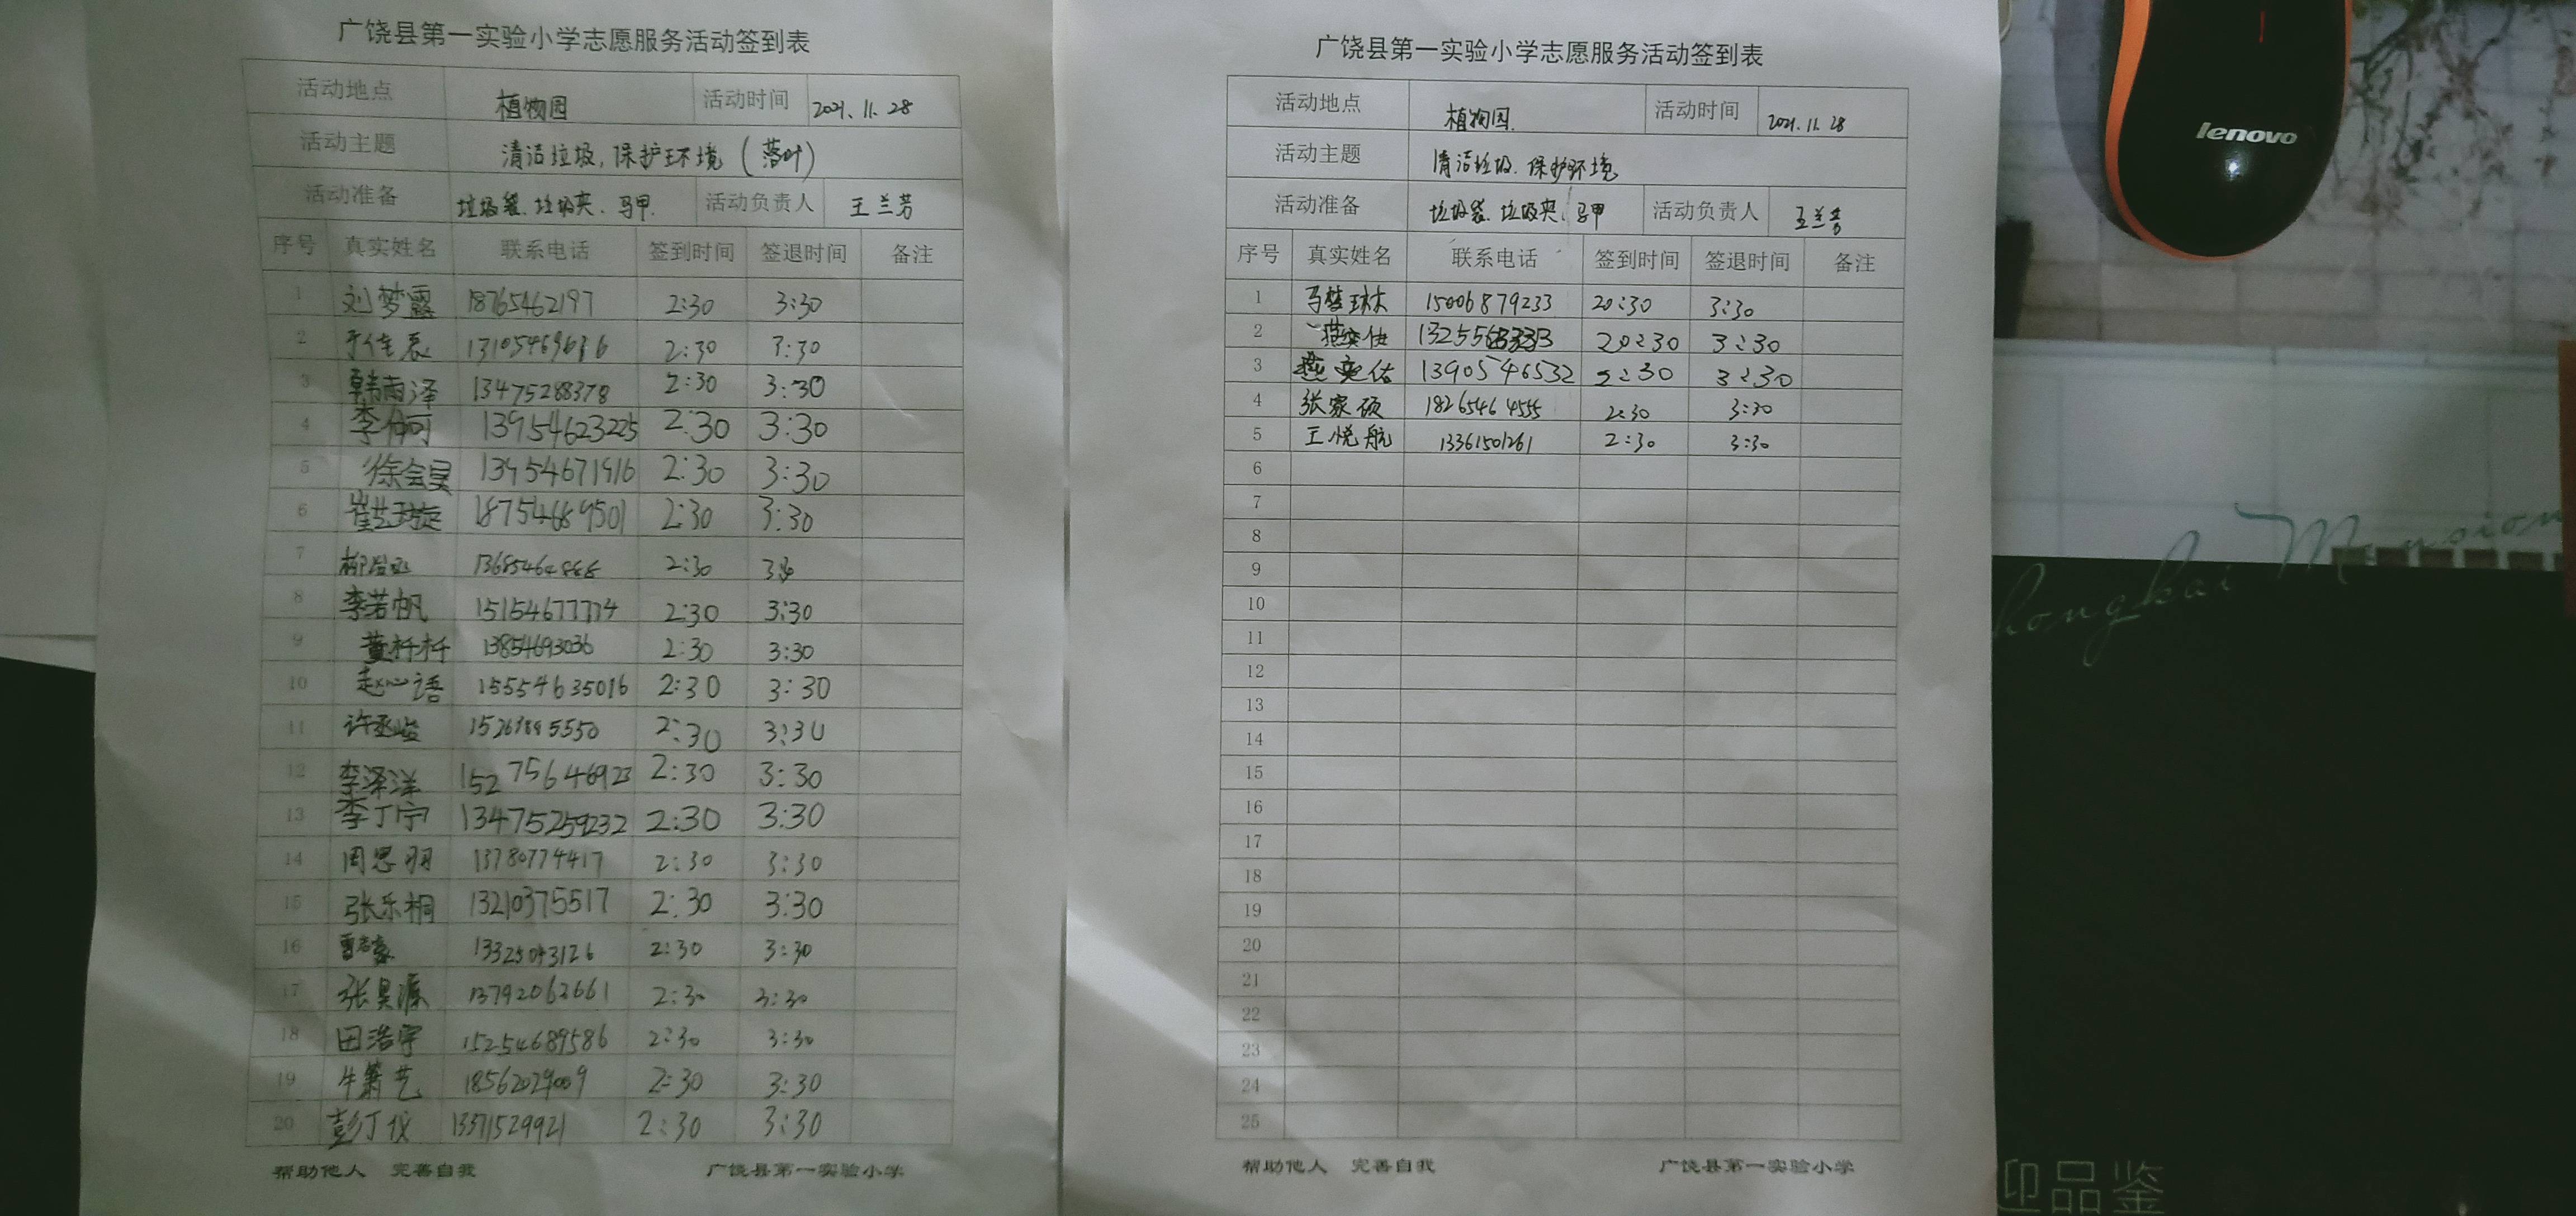 广饶县第一实验小学志愿服务活动签到表
活动地点 植物园 活动时间 2021.11.28
活动主题 清洁垃圾,保护环境(落叶)
活动准备 垃圾袋、垃圾夹、马甲. 活动负责人 王兰芳
序号 真实姓名 联系电话 签到时间 签退时间 备注
1 刘梦露 18765462197 2:30 3:30
2 于佳辰 2:30 3:30
3 韩雨泽 13475288378 2:30 3:30
4 13954623225 2:30 3:30
5 徐会昊 13954671916 2:30 3:30
6 18754689501 2:30 3:30
7 2:30
8 李若帆 2:30 3:30
9 董杆杆 13854693036 2:30 3:30
10 赵心语 15554635016 2:30 3:30
11 2:30 3:30
12 李泽洋 2:30 3:30
13 李丁宁 13475259232 2:30 3:30
14 周思羽 13780774417 2:30 3:30
15 张乐桐 13210375517 2:30 3:30
16 2:30 3:30
17 张昊源 13792062661 2:30 3:30
18 田浩宇 15254689586 2:30 3:30
19 牛箫艺 18562029009 2:30 3:30
20 彭丁仪 13371529921 2:30 3:30
帮助他人 完善自我 广饶县第一实验小学
广饶县第一实验小学志愿服务活动签到表
活动地点 植物园. 活动时间 2021.11.28
活动主题 清洁垃圾.保护环境
活动准备 垃圾袋.垃圾夹.马甲 活动负责人 王兰芳
序号 真实姓名 联系电话 签到时间 签退时间 备注
1 马梦琳 15006879233 20:30 3:30
2 20:30 3:30
3 燕奕佑 13905546532 2:30 3:30
4 张家硕 18265464555 2:30 3:30
5 王悦航 13361501261 2:30 3:30
6
7
8
9
10
11
12
13
14
15
16
17
18
19
20
21
22
23
24
25
帮助他人 完善自我 广饶县第一实验小学
lenovo
hongkai Mansion
迎品鉴